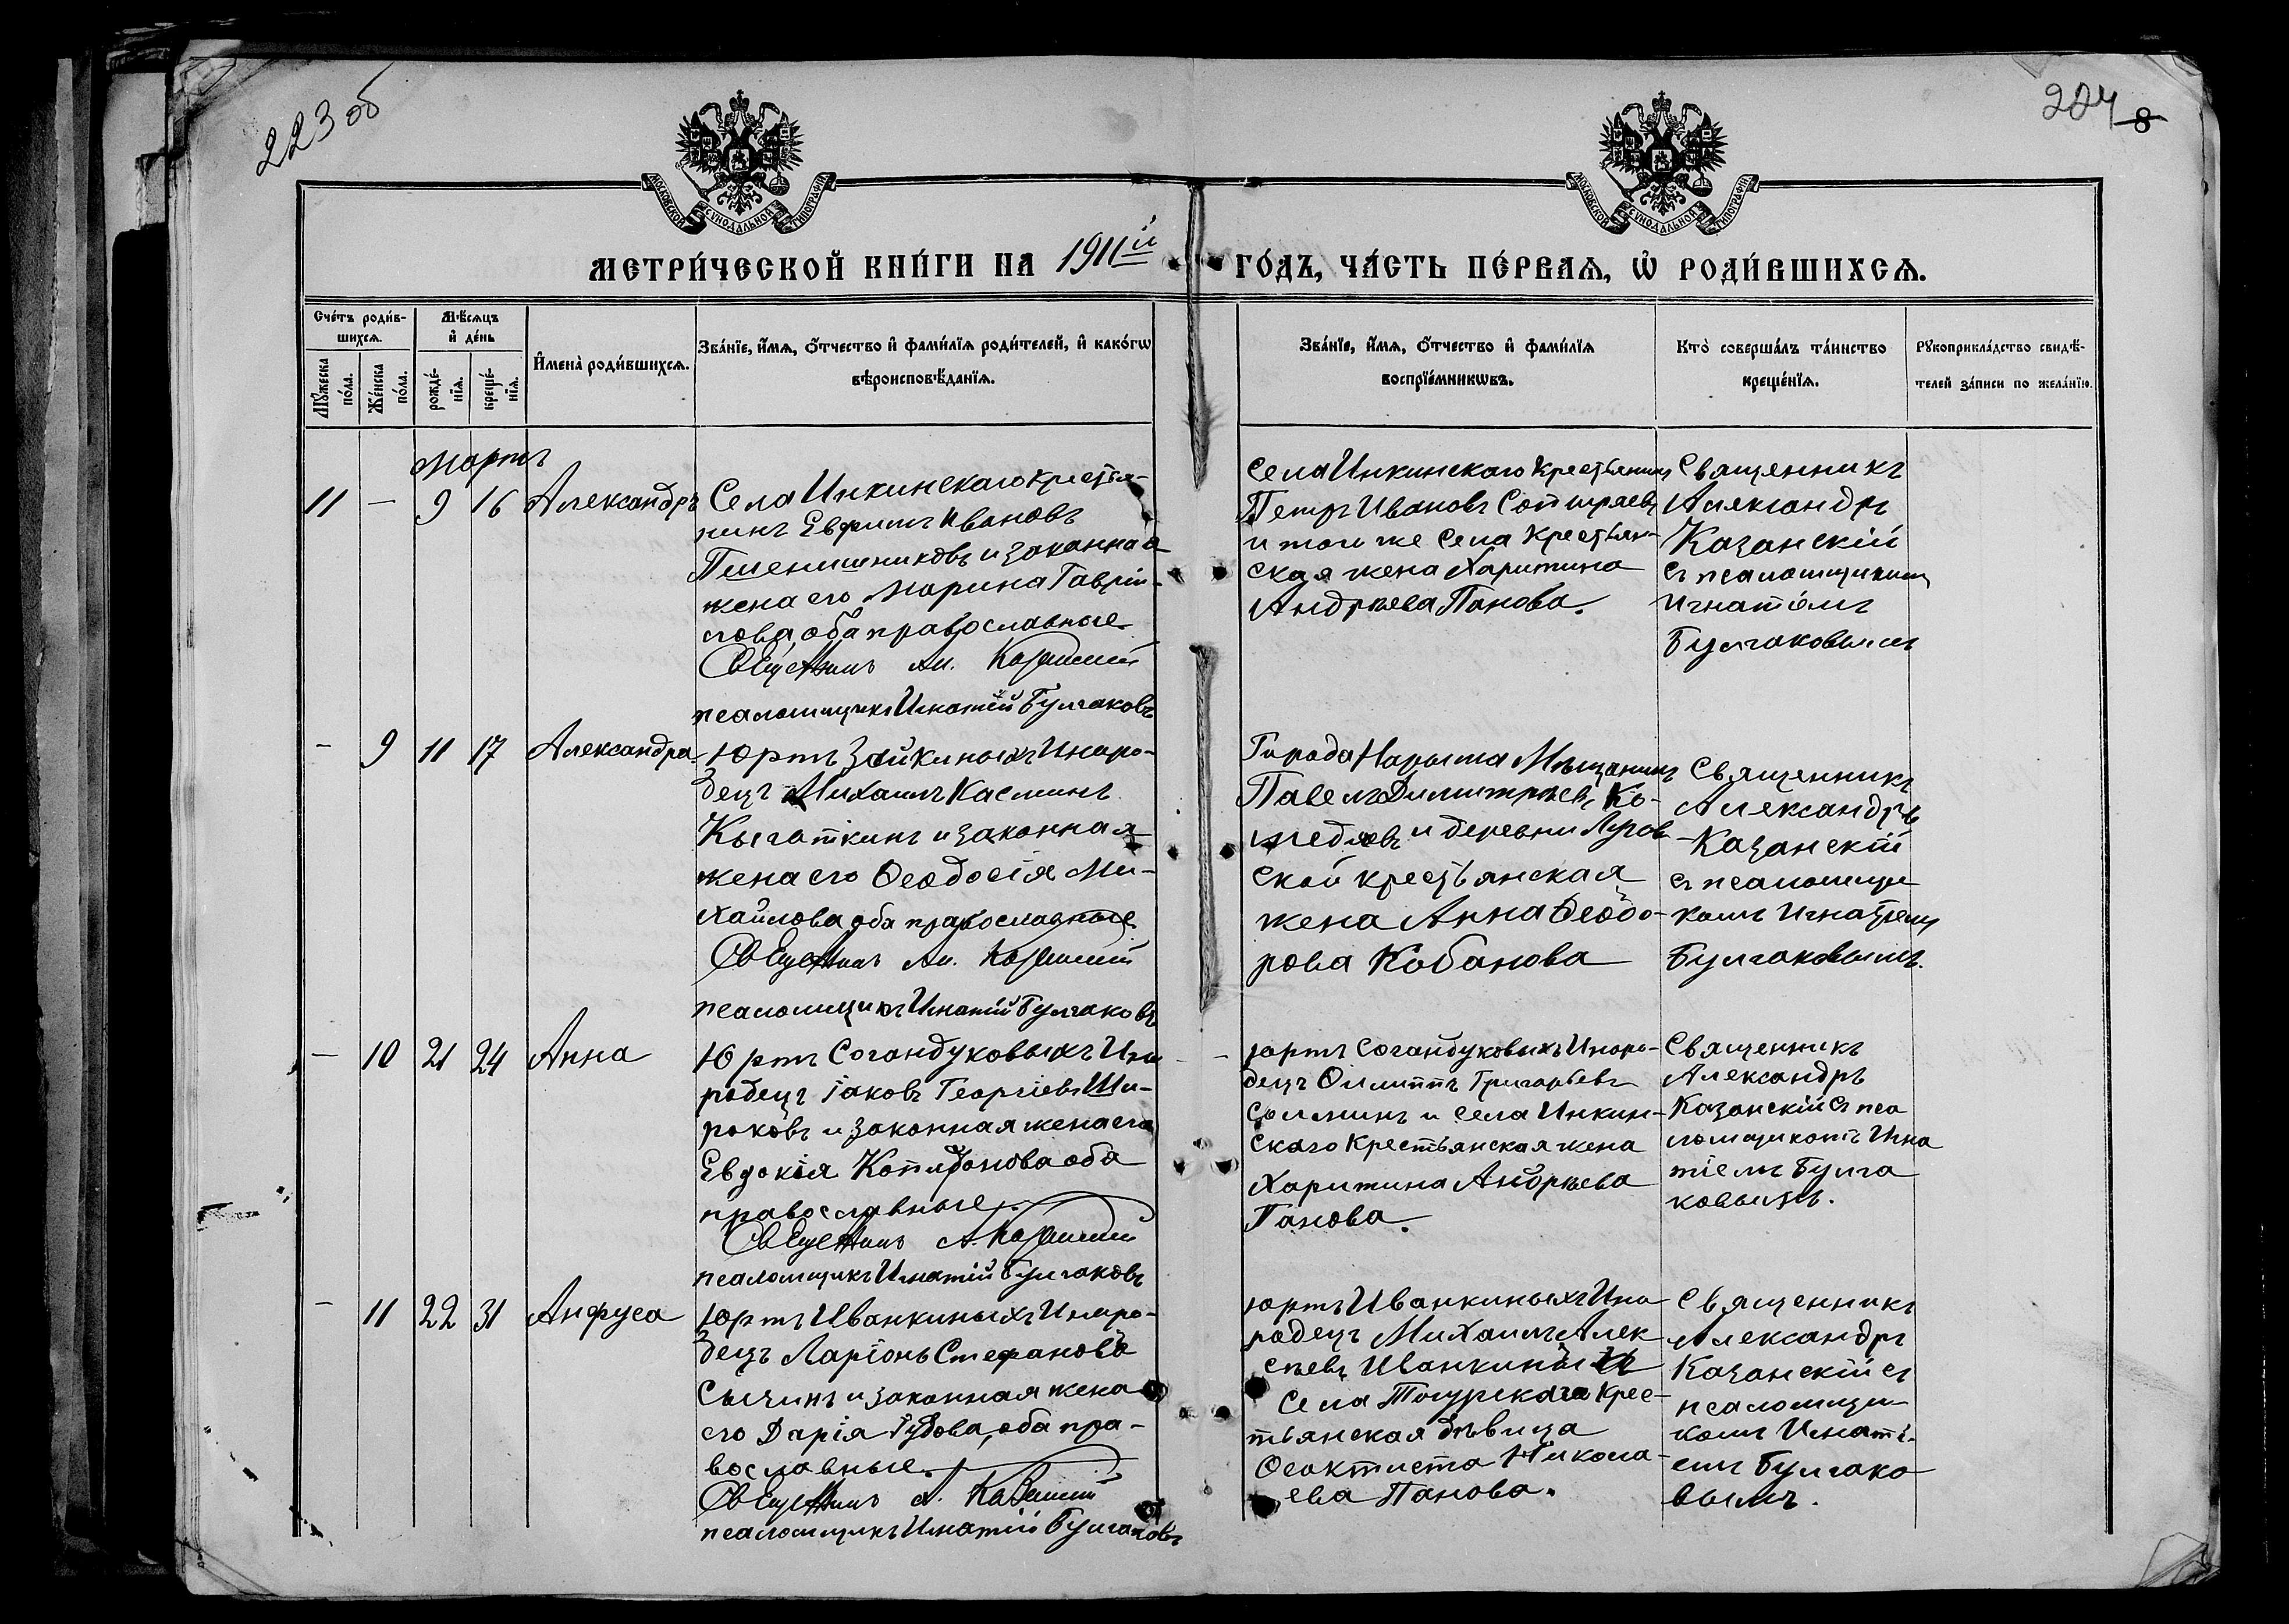 223 об
224 8
МОСКОВСКОЙ СѴНОДАЛЬНОЙ ТИПОГРАФІИ
МОСКОВСКОЙ СѴНОДАЛЬНОЙ ТИПОГРАФІИ
МЕТРИ́ЧЕСКОЙ КНИ́ГИ НА 1911й ГО́ДЪ, ЧА́СТЬ ПЕ́РВАѦ, Ѡ҆ РОДИ́ВШИХСѦ.
Сче́тъ роди́в-
шихсѧ.
Мꙋ́жеска
по́ла.
Же́нска
по́ла.
Мѣ́сѧцъ
и҆ де́нь
рожде́-
нїѧ.
креще́-
нїѧ.
И҆мена̀ роди́вшихсѧ.
Зва́нїе, и҆́мѧ, ѻ҆́тчество и҆ фами́лїѧ роди́телей, и҆ како́гѡ
вѣроисповѣ́данїѧ.
Зва́нїе, и҆́мѧ, ѻ҆́тчество и҆ фами́лїѧ
воспрїе́мникѡвъ.
Кто̀ соверша́лъ та́инство
креще́нїѧ.
Рꙋкоприкла́дство свидѣ́-
телей за́писи по жела́нїю.
Мартъ
11 — 9 16 Александръ
Села Инкинскаго крестья-
нинъ Ефимъ Ивановъ
Пшенишниковъ и законная
жена его Марина Гавріи-
лова, оба православные
Священникъ Ал. Казанскій
псаломщикъ Игнатій Булгаковъ
Села Инкинскаго крестьянинъ
Петръ Ивановъ
и того же села крестьян-
ская жена Харитина
Андреева Панова.
Священникъ
Александръ
Казанскій
съ псаломщикомъ
Игнатіемъ
Булгаковымъ
— 9 11 17 Александра
Юртъ Зайкиныхъ Иноро-
децъ Михаилъ Касминъ
Кыгаткинъ и законная
жена его Ѳеодосія Ми-
хайлова оба православные
Священникъ Ал. Казанскій
псаломщикъ Игнатій Булгаковъ
Города Нарыма Мѣщанинъ
Павелъ Димитріевъ Ко-
жедяевъ и деревни Лугов-
ской крестьянская
жена Анна Ѳеодо-
рова Кобанова
Священникъ
Александръ
Казанскій
съ псаломщи
комъ Игнатіемъ
Булгаковымъ.
— 10 21 24 Анна
Юртъ Согандуковыхъ Ино
родецъ Іаковъ Георгіевъ Ши-
роковъ и законная жена его
Евдокія Капитонова оба
православные.
Священникъ А. Казанскій
псаломщикъ Игнатій Булгаковъ
Юртъ Согандуковыхъ Иноро-
децъ Филиппъ Григорьевъ
и села Инкин-
скаго Крестьянская жена
Харитина Андреева
Панова.
Священникъ
Александръ
Казанскій съ пса
ломщикомъ Игна
тіемъ Булга
ковымъ.
— 11 22 31 Анфуса
Юртъ Иванкиныхъ Иноро-
децъ Ларіонъ Стефановъ
Сычинъ и законная жена
его Дарія оба пра-
вославные.
Священникъ А. Казанскій
псаломщикъ Игнатій Булгаковъ
Юртъ Иванкиныхъ Ино
родецъ Михаилъ Алек
сѣевъ Иванкинъ и
Села Тогурскаго Крес-
тьянская дѣвица
Ѳеоктиста Никола-
ева Панова.
Священникъ
Александръ
Казанскій съ
псаломщи-
комъ Игнаті-
емъ Булгако
вымъ.